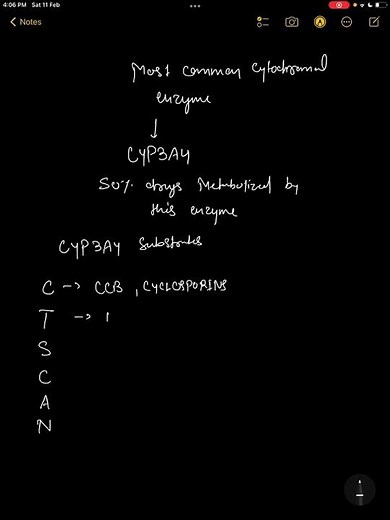 4:06 PM Sat 11 Feb
Notes
Most common cytochromal
enzyme
↓
CYP3A4
50% drugs Metabolized by
this enzyme
CYP3A4 Substrates
C → CCB, CYCLOSPORINS
T →
S
C
A
N